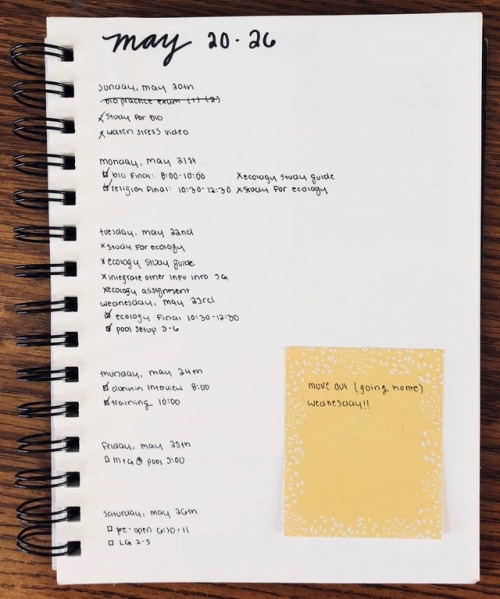 may 20-26
sunday, may 20th
bio practice exam (1) (2)
x study for bio
x watch stress video
monday, may 21st
bio final: 8:00-10:00 x ecology study guide
religion final: 10:30-12:30 x study for ecology
tuesday, may 22nd
x study for ecology
x ecology study guide
x integrate other info into SG
x ecology assignment
wednesday, may 23rd
ecology final 10:30-12:30
pool setup 3-6
thursday, may 24th
interview 8:00
training 10:00
friday, may 25th
mtg @ pool 5:00
saturday, may 26th
pre-open 6:30-11
LG 2-5
move out (going home)
wednesday!!